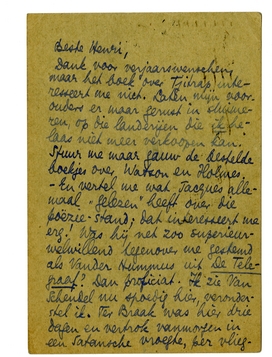 Beste Henri,
Dank voor verjaarswenschen,
maar het boek over Tjitrap inte-
resseert me niet. Laten mijn voor-
ouders er maar gerust in sluime-
ren, op die landerijen die ik he-
laas niet meer verkoopen kan.
Stuur me maar gauw de bestelde
boekjes over Watson en Holmes.
- En vertel me wat Jacques alle-
maal "gelezen" heeft over die
poëzie-stand; dat interesseert me
erg! Was hij net zoo superieur-
welwillend tegenover me gestemd
als Vander Hummus uit De Tele-
graaf? Dan proficiat. Ik zie Van
Schendel nu spoedig hier, veronder-
stel ik. Ter Braak was hier drie
dagen en vertrok vanmorgen in
een Satansche vroegte, per vlieg-